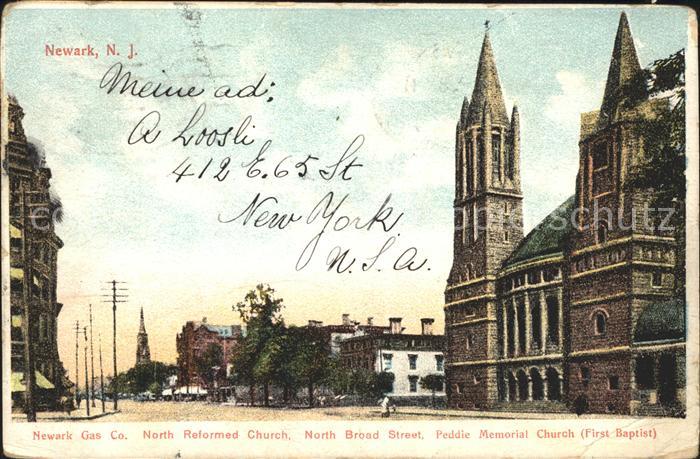 Newark, N. J.
Meine ad:
A Loosli
412 E. 65 St
New York
N. S. A.
Newark Gas Co. North Reformed Church, North Broad Street, Peddie Memorial Church (First Baptist)